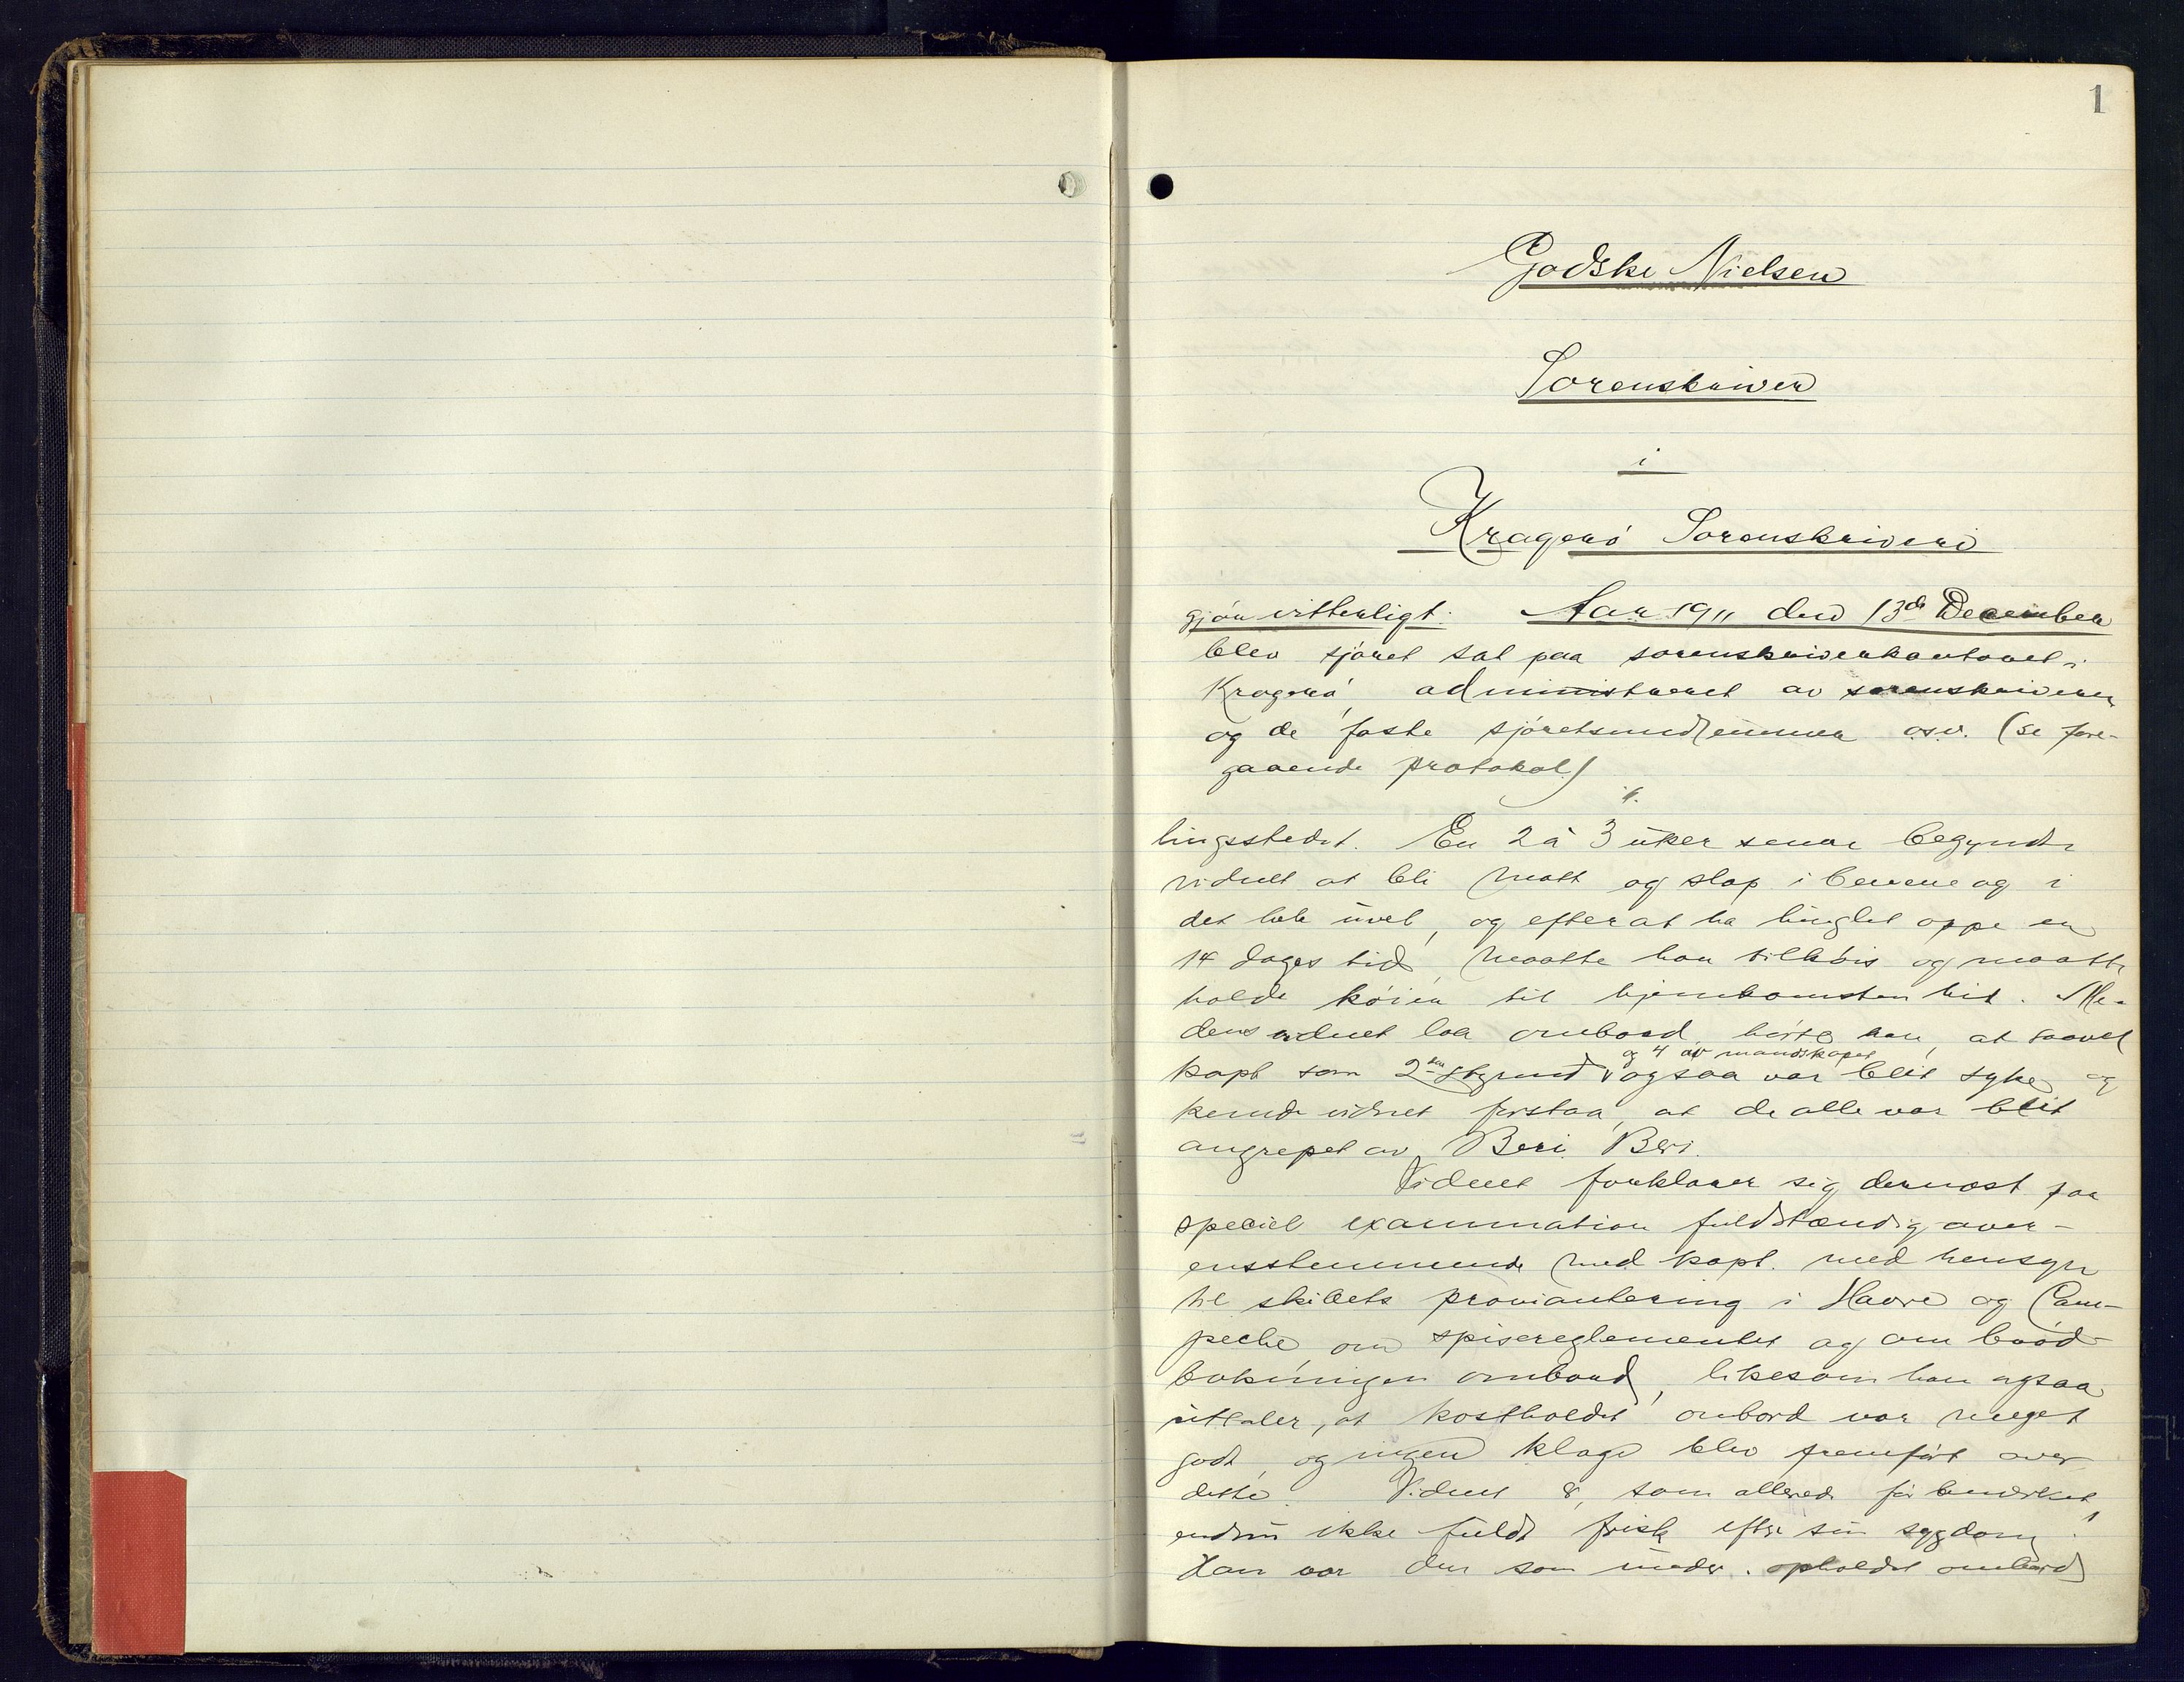 1
Godske Nielsen
Sorenskriver
i
Kragerø Sorenskriveri
gjør vitterligt: Aar 1911 den 13de December
blev sjøret sat paa sorenskriverkontoret i
Kragerø, administreret av sorenskriveren
og de faste sjøretsmedlemmer osv. (se fore-
gaaende protokol)
lingsstedet. En 2 à 3 uker senere begyndte
vidnet at bli mat og slap i benene og i
det hele uvel, og efterat ha hinglet oppe en
14 dages tid, maatte han tilkøis og maatte
holde køien til hjemkomsten hit. Me-
dens vidnet laa ombord, hørte han, at saavel
kapt som 2den styrmd og 4 av mandskapet ogsaa var blit syke, og
kunde vidnet forstaa, at de alle var blit
angrepet av Beri Beri.
Vidnet forklarer sig dernæst paa
speciel examination fuldstændig over-
ensstemmende med kapt. med hensyn
til skibets proviantering i Havre og Cam-
peche, om spisereglementet og om brød-
bakningen ombord, likesom han ogsaa
uttaler, at kostholdet ombord var meget
godt, og ingen klage blev fremført over
dette. Vidnet er, som allerede før bemerket,
endnu ikke fuldt frisk efter sin sygdom.
Han var den som under opholdet ombord